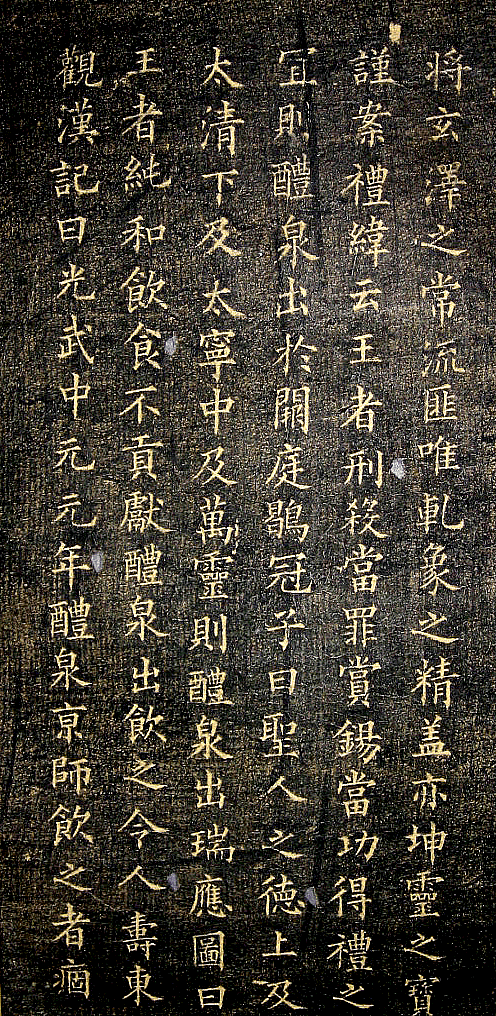 将玄澤之常流匪唯乹象之精盖亦坤靈之寶
謹案禮緯云王者刑殺當罪賞錫當功得禮之
冝則醴泉出於闕庭鶡冠子曰聖人之德上及
太清下及太寧中及萬靈則醴泉出瑞應圖曰
王者純和飲食不貢獻醴泉出飲之令人壽東
觀漢記曰光武中元元年醴泉京師飲之者痼